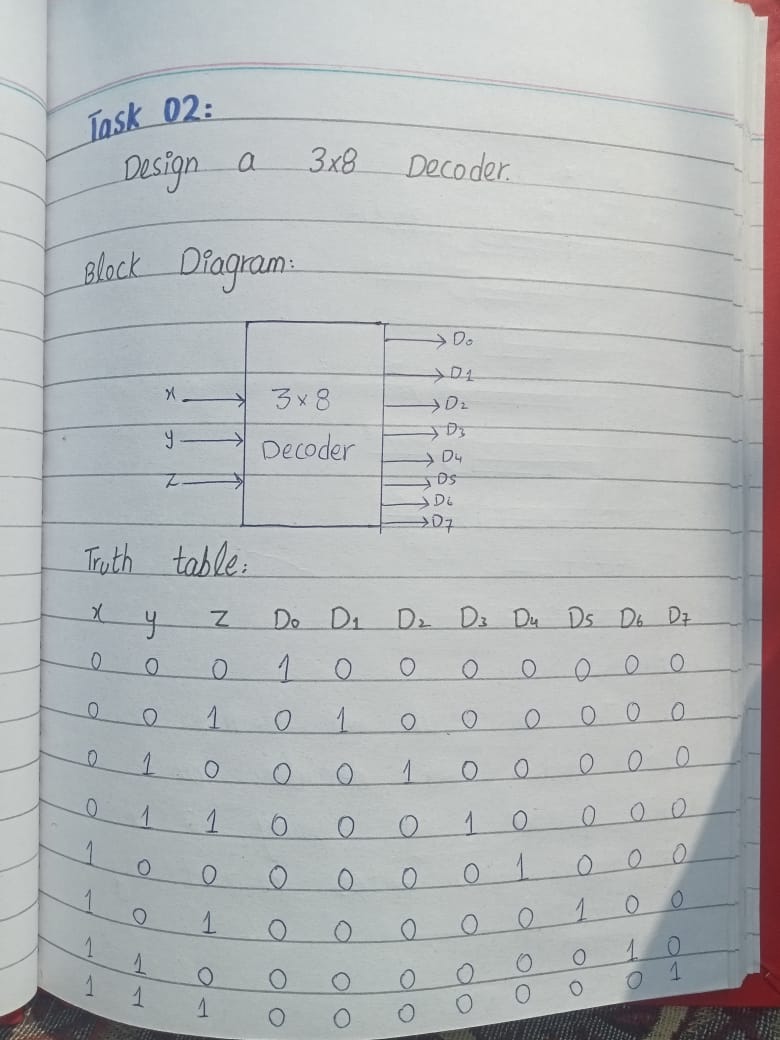 Task 02:
Design a 3x8 Decoder.
Block Diagram:
D0
D1
x 3x8 D2
y D3
Decoder D4
z D5
D6
D7
Truth table:
x y z D0 D1 D2 D3 D4 D5 D6 D7
0 0 0 1 0 0 0 0 0 0 0
0 0 1 0 1 0 0 0 0 0 0
0 1 0 0 0 1 0 0 0 0 0
0 1 1 0 0 0 1 0 0 0 0
1 0 0 0 0 0 0 1 0 0 0
1 0 1 0 0 0 0 0 1 0 0
1 1 0 0 0 0 0 0 0 1 0
1 1 1 0 0 0 0 0 0 0 1